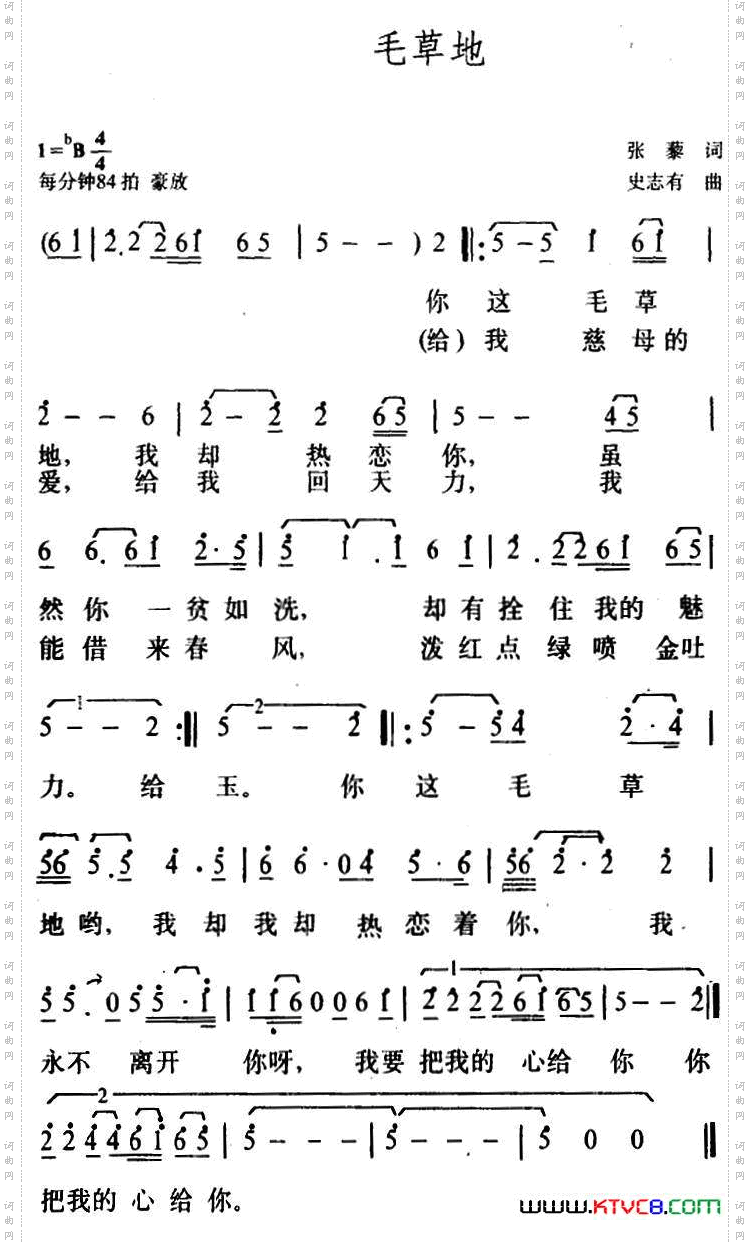 毛草地
1=♭B 4/4
张 藜 词
每分钟84拍 豪放
史志有 曲
(6 1 | 2. 2 2 6 1 6 5 | 5 - - ) 2 ‖: 5 - 5 1 6 1 |
你 这 毛 草
(给) 我 慈 母 的
2 - - 6 | 2 - 2 2 6 5 | 5 - - 4 5 |
地, 我 却 热 恋 你, 虽
爱, 给 我 回 天 力, 我
6 6. 6 1 2 · 5 | 5 1 . 1 6 1 | 2 . 2 2 6 1 6 5 |
然 你 一 贫 如 洗, 却 有 拴 住 我 的 魅
能 借 来 春 风, 泼 红 点 绿 喷 金 吐
1 2
5 - - 2 :‖ 5 - - 2 ‖: 5 - 5 4 2 · 4 |
力。 给 玉。 你 这 毛 草
5 6 5 . 5 4 . 5 | 6 6 · 0 4 5 · 6 | 5 6 2 · 2 2 |
地 哟, 我 却 我 却 热 恋 着 你, 我
1
5 5. 0 5 5 · 1 | 1 1 6 0 0 0 6 1 | 2 2 2 2 6 1 6 5 | 5 - - 2 :‖
永 不 离 开 你 呀, 我 要 把 我 的 心 给 你 你
2
2 2 4 4 6 1 6 5 | 5 - - - | 5 - - - | 5 0 0 ‖
把 我 的 心 给 你。
www.KTVC8.com
词曲网